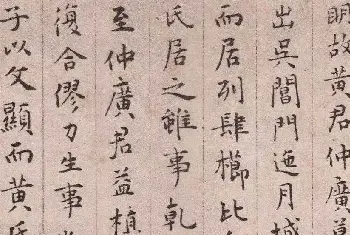 明故黄君仲廣墓
出吳閶門迤月城
而居列肆櫛比
氏居之雖事乹
至仲廣君益植
復合僇力生事
子以父顯而黄氏